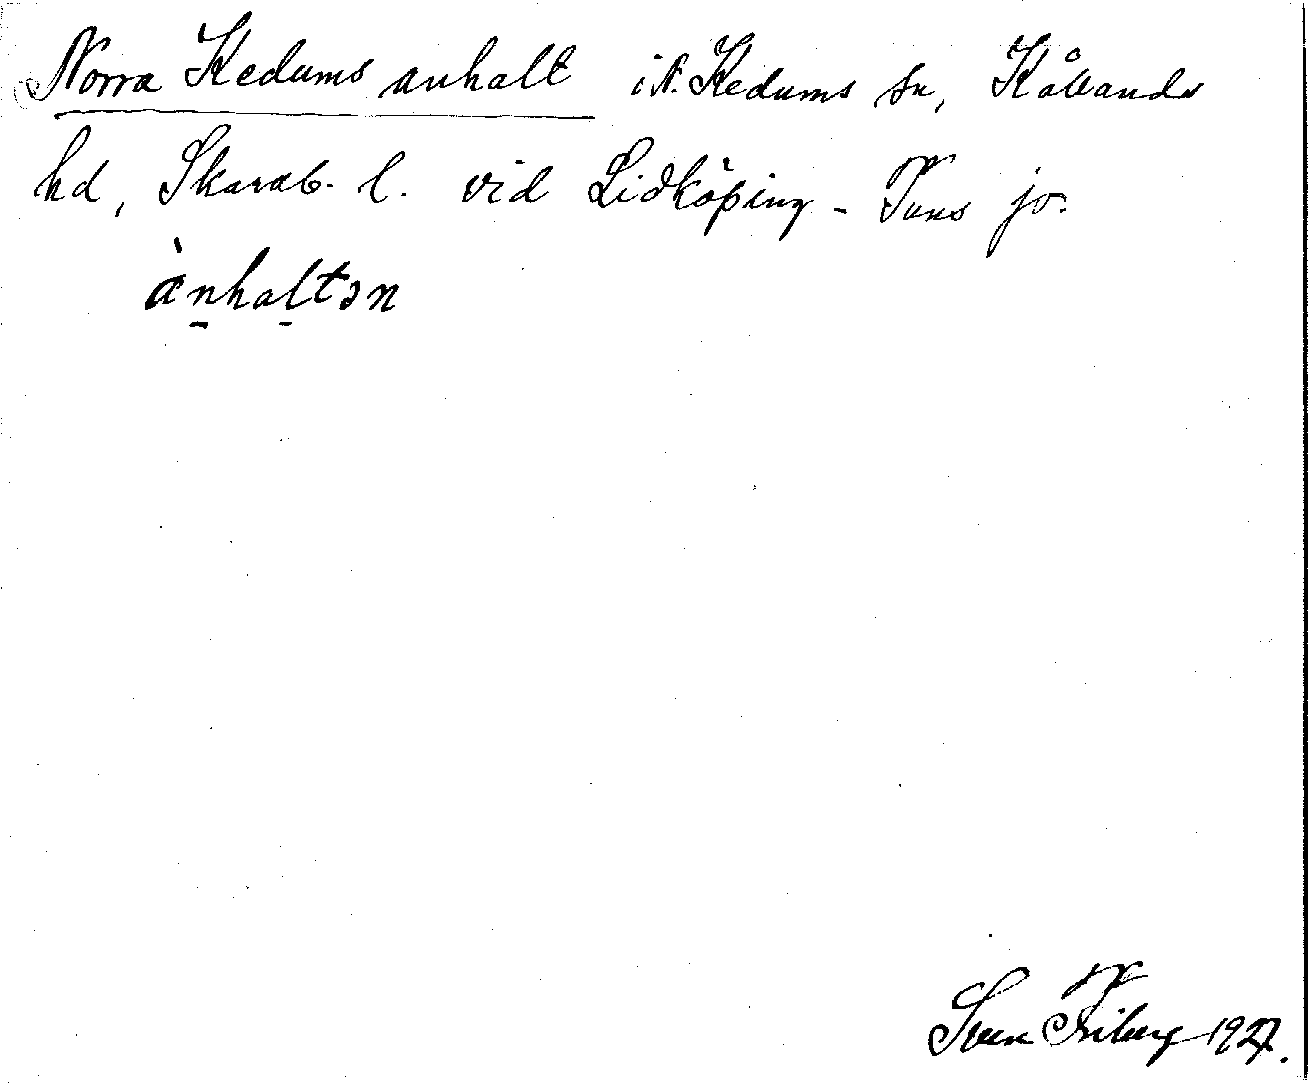 Norra Kedums anhalt i N. Kedums sn, Kållands
hd, Skarab. l. vid Lidköping - Tuns jo.
ànhaltən
Sven Friberg 1927.